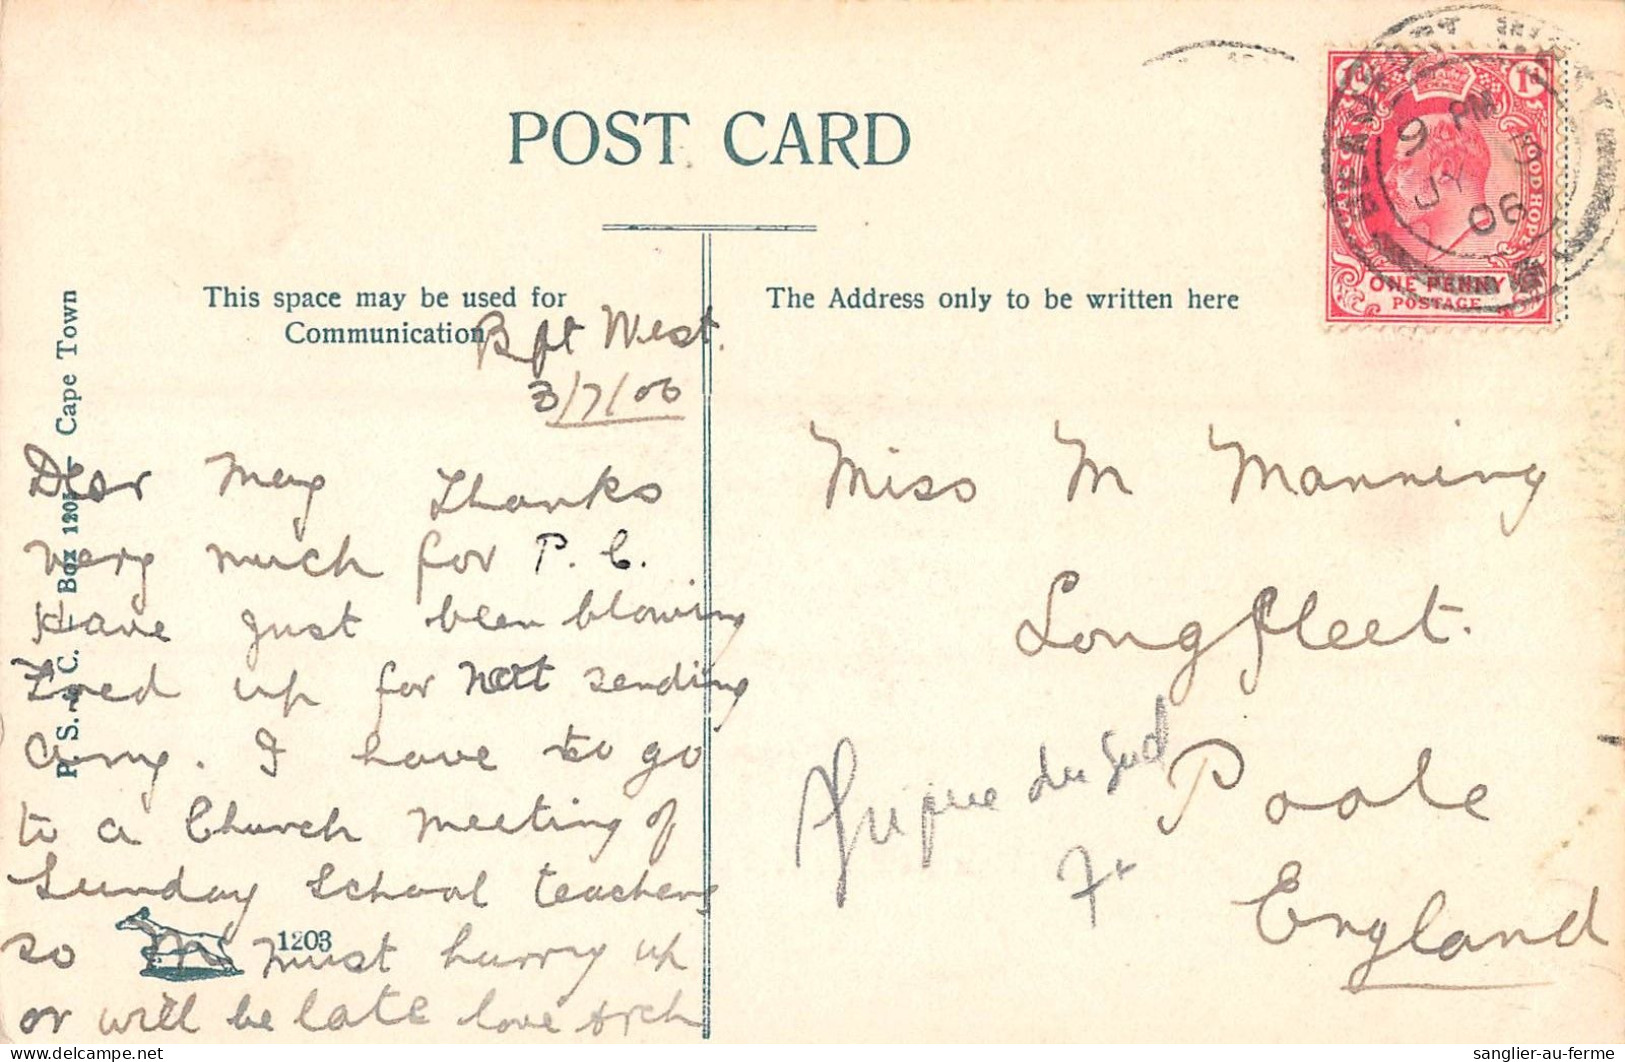 POST CARD
This space may be used for
Communication
The Address only to be written here
P. S. & C. Box 1205 — Cape Town
1203
BEAUFORT WEST
9 PM
JY 3
06
1d 1d
CAPE OF GOOD HOPE
ONE PENNY
POSTAGE
Bft West.
3/7/06
Dear May Thanks
very much for P. C.
Have just been blowing
Fred up for not sending
any. I have to go
to a Church meeting of
Sunday School teachers
so must hurry up
or will be late love Arch
Miss M Manning
Longfleet.
Poole
England
Afrique du Sud
7+
sanglier-au-ferme
www.delcampe.net